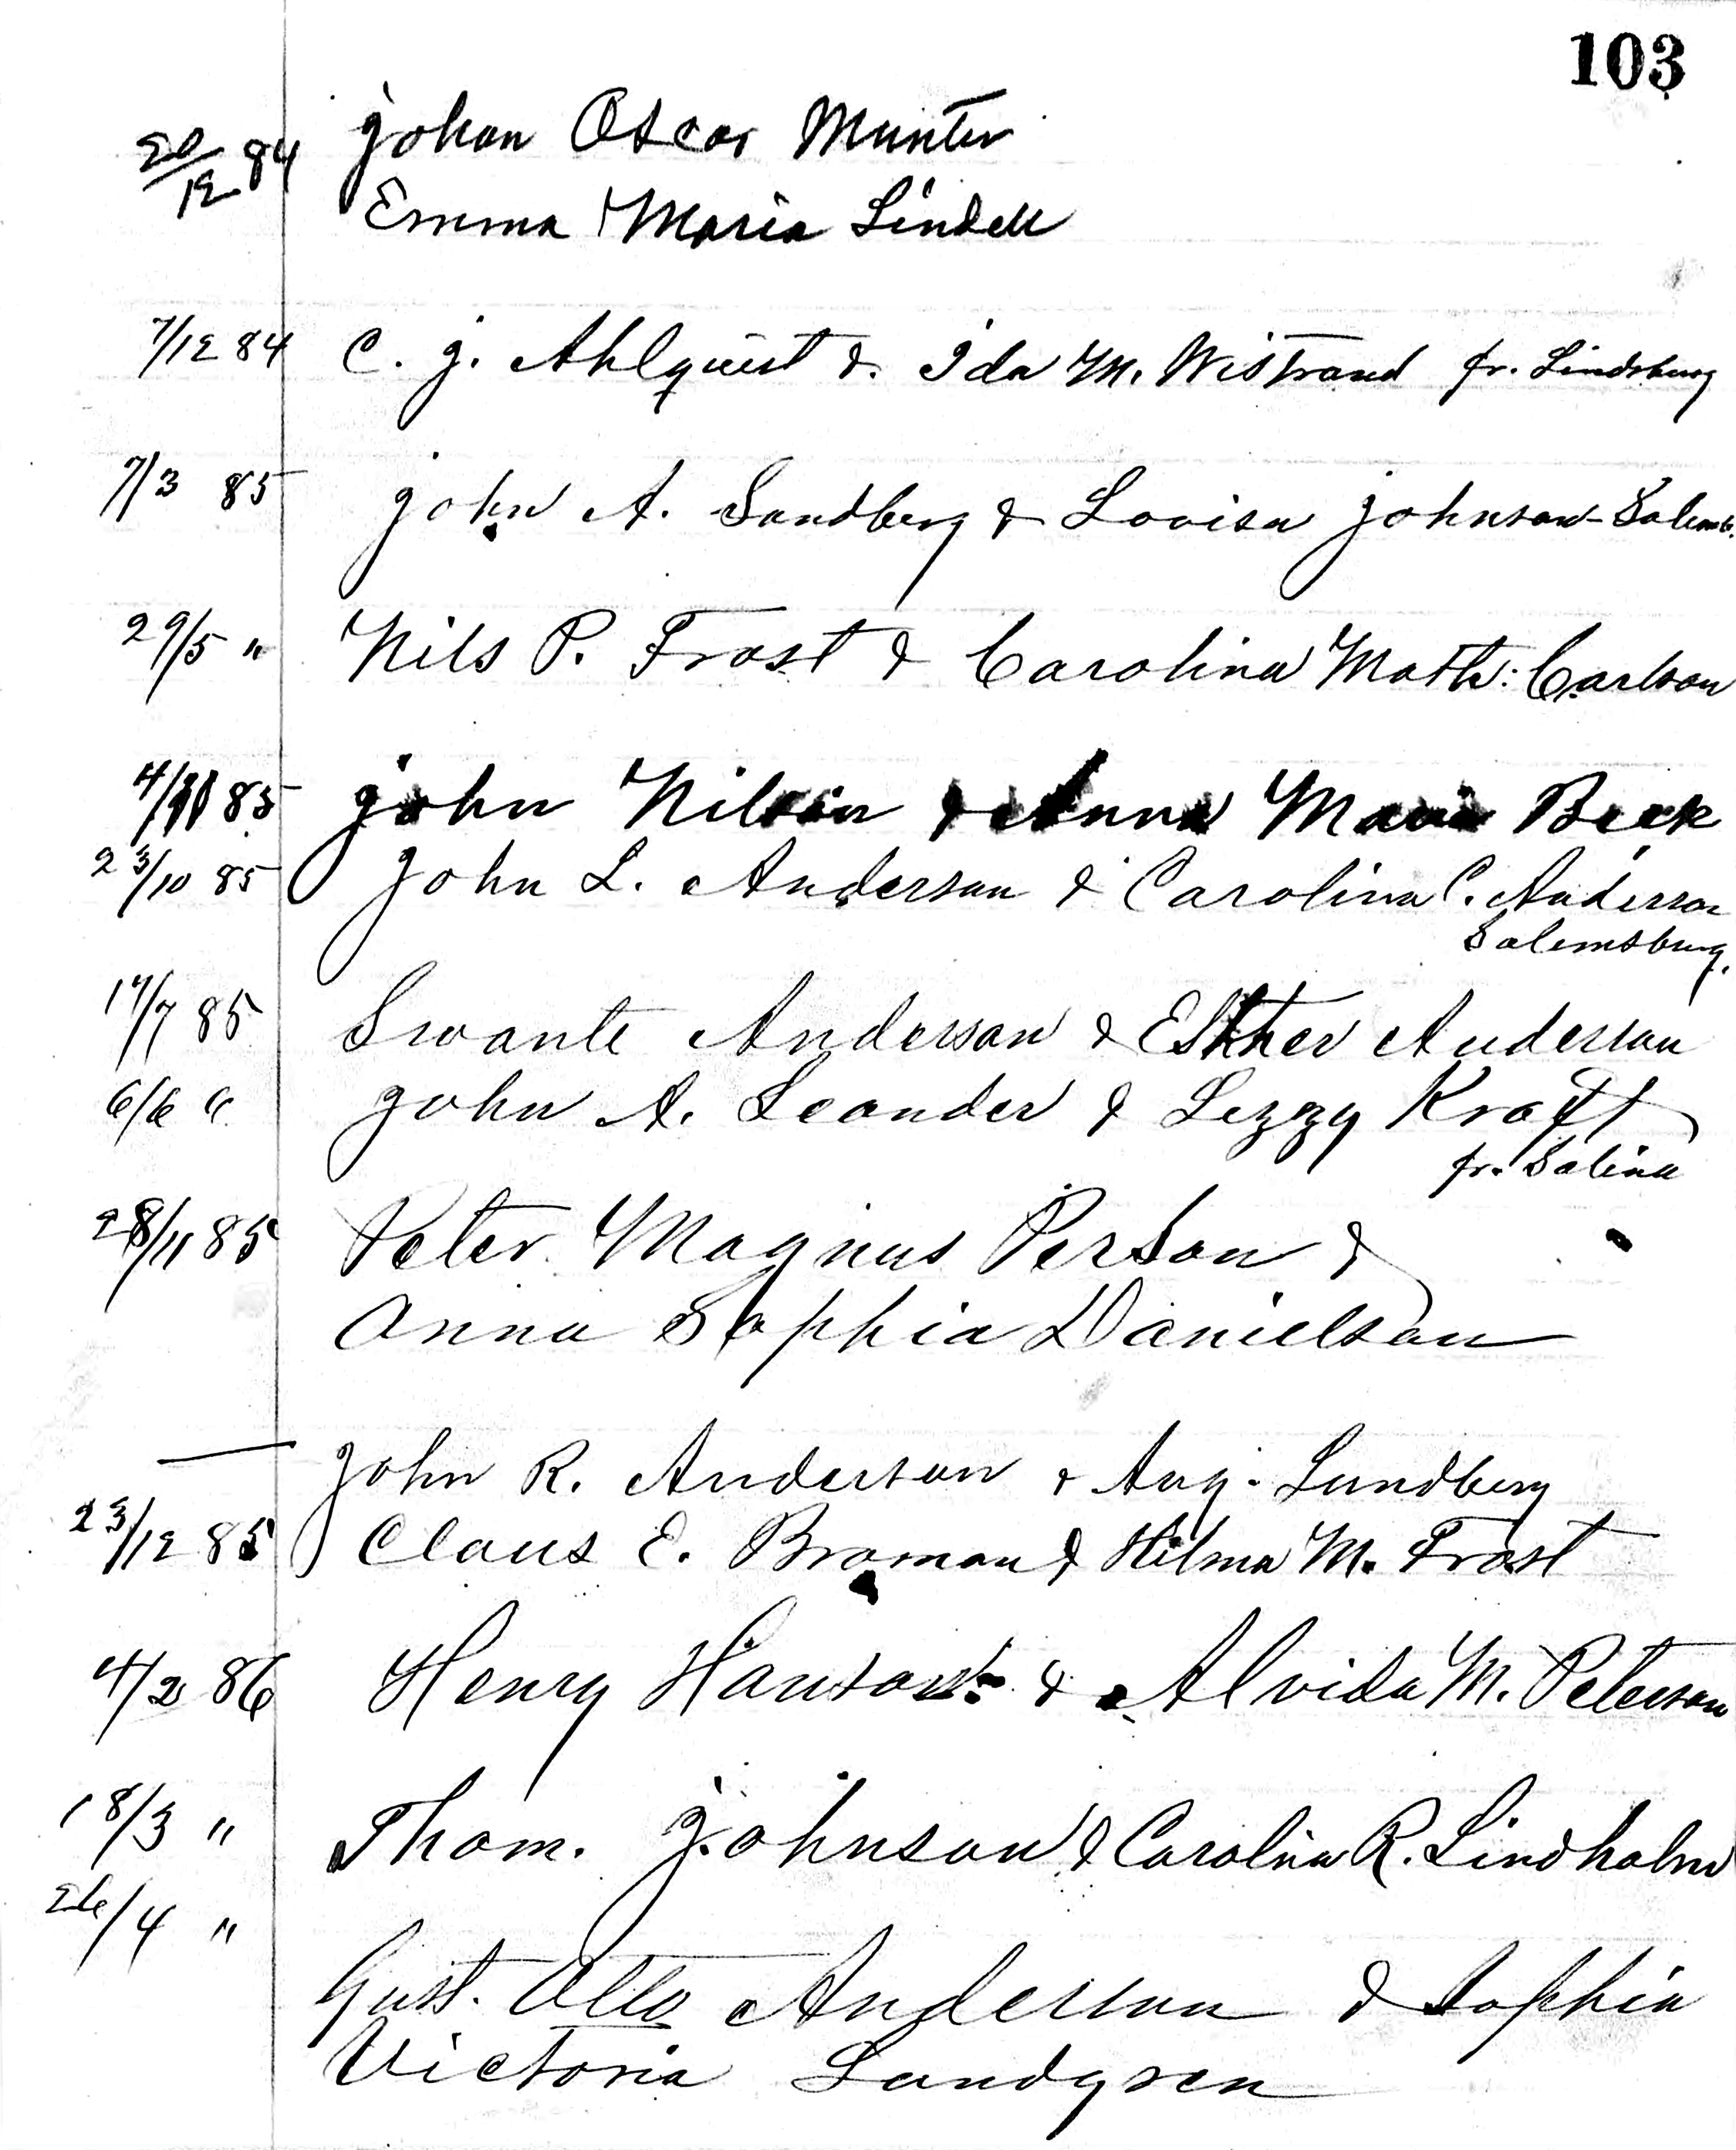 103
20/12 84 Johan Oscar Munter
Emma Maria Lindell
7/12 84 C. J. Ahlquist & Ida M. Wistrand fr. Lindsburg
7/3 85 John A. Sandberg & Lovisa Johnson - Salemsb.
29/5 " Nils P. Frost & Carolina Math: Carlson
4/11 85 John Nilson & Anna Maria Beck
23/10 85 John L. Anderson & Carolina C. Anderson
Salemsburg.
17/7 85 Swante Anderson & Esther Anderson
6/6 " John A. Leander & Lezzy Kraft
fr. Salina
28/11 85 Peter Magnus Person &
Anna Sophia Danielson
— John R. Anderson & Aug. Lundberg
23/12 85 Claus E. Broman & Hilma M. Frost
4/2 86 Henry Hanson & Alvida M. Peterson
18/3 " Thom. Johnson & Carolina R. Lindholm
26/4 "
Gust. Otto Anderson & Sophia
Victoria Lundgren